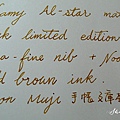 amy Al-star ma
ck limited edition
a-fine nib + Noo
d brown ink.
on Muji 手帳文庫